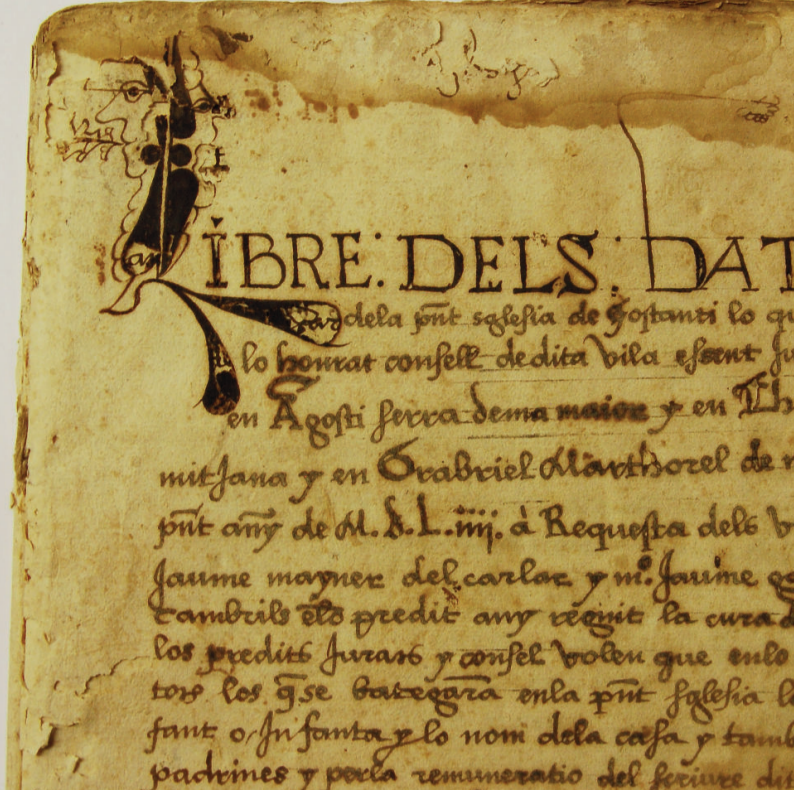 LIBRE: DELS: DAT
dela pñt sglesia de Costanti lo qu
lo honrat consell de dita vila essent Ju
en Agosti serra dema maior y en Th
mitjana y en Grabriel Marthorel de m
pñt añy de M.D.L.iiij. à Requesta dels v
Jaume mayner del carlar y mº. Jaume
Cambrils els predit any regnit la cura d
los predits Jurats y consel volen que enlo
tors los q̃ se bategarã enla pñt sglesia l
fant o Infanta y lo nom dela casa y tamb
padrines y perla remuneratio del scriure dit